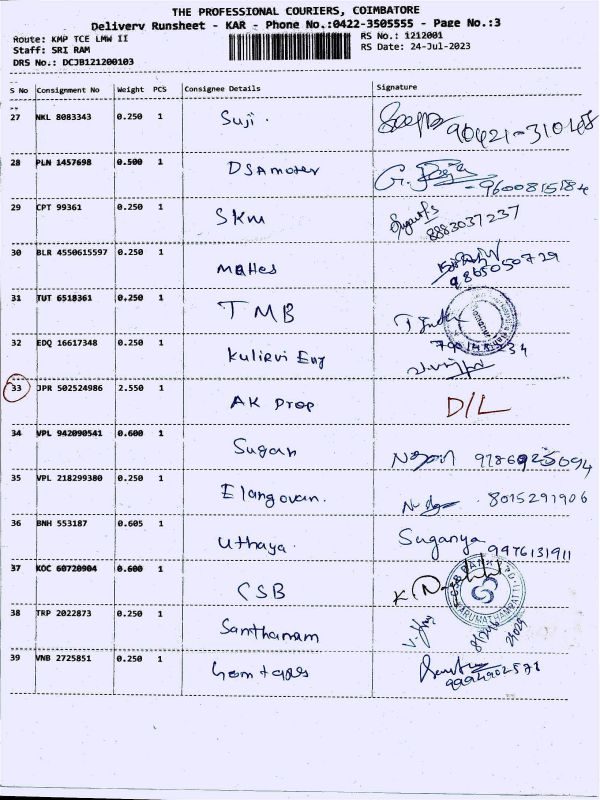 THE PROFESSIONAL COURIERS, COIMBATORE
Delivery Runsheet - KAR - Phone No.:0422-3505555 - Page No.:3
Route: KMP TCE LMW II RS No.: 1212001
Staff: SRI RAM RS Date: 24-Jul-2023
DRS No.: DCJB121200103
S No Consignment No Weight PCS Consignee Details Signature
27 NKL 8083343 0.250 1 Suji. 90421-31048
28 PLN 1457698 0.500 1 DSAmoter G. Raja - 9600815184
29 CPT 99361 0.250 1 SKM 8883037237
30 BLR 4550615597 0.250 1 Mahes 9865050729
31 TUT 6518361 0.250 1 TMB
32 EDQ 16617348 0.250 1 Kulirvi Eng
33 JPR 502524986 2.550 1 AK Prop D/L
34 VPL 942090541 0.600 1 Sugan
35 VPL 218299380 0.250 1 Elangovan. 8015291906
36 BNH 553187 0.605 1 Uthaya. Suganya 9976131911
37 KOC 60720904 0.600 1 CSB
38 TRP 2022873 0.250 1 Santhanam
39 VNB 2725851 0.250 1 9994902571